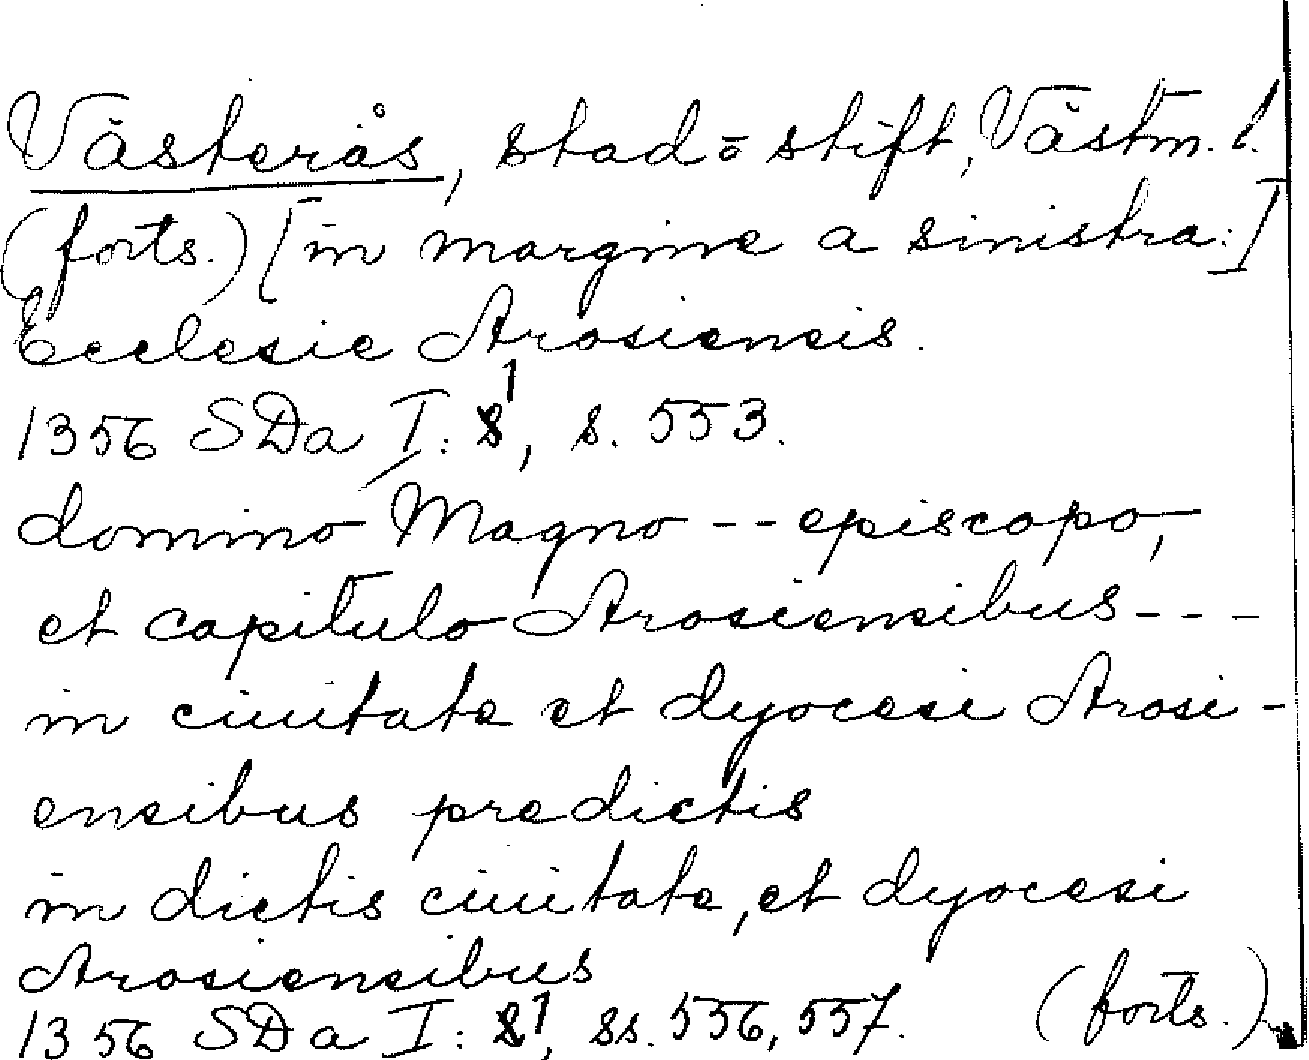 Västerås, stad ō stift, Västm. l.
(forts.) [in margine a sinistra:]
Ecclesie Arosiensis.
1356 SDa I: 1, s. 553.
domino Magno -- episcopo,
et capitulo Arosiensibus ---
in ciuitate et dyocesi Arosi-
ensibus predictis
in dictis ciuitate, et dyocesi
Arosiensibus
1356 SDa I: 1, ss. 556, 557. (forts.)